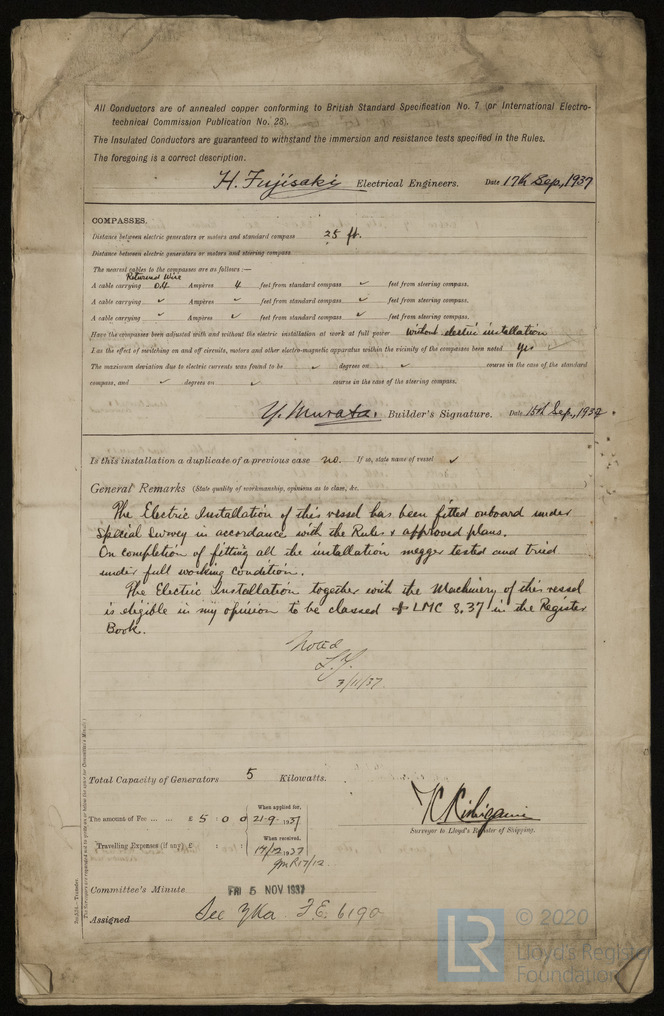 All Conductors are of annealed copper conforming to British Standard Specification No. 7 (or International Electro-
technical Commission Publication No. 28).
The Insulated Conductors are guaranteed to withstand the immersion and resistance tests specified in the Rules.
The foregoing is a correct description.
H. Fujisaki Electrical Engineers. Date 17th Sep., 1937
COMPASSES.
Distance between electric generators or motors and standard compass 25 ft.
Distance between electric generators or motors and steering compass
The nearest cables to the compasses are as follows:—
Returned Wire
A cable carrying 0.4 Ampères 4 feet from standard compass ✓ feet from steering compass.
A cable carrying ✓ Ampères ✓ feet from standard compass ✓ feet from steering compass.
A cable carrying ✓ Ampères ✓ feet from standard compass ✓ feet from steering compass.
Have the compasses been adjusted with and without the electric installation at work at full power without electric installation
Has the effect of switching on and off circuits, motors and other electro-magnetic apparatus within the vicinity of the compasses been noted yes
The maximum deviation due to electric currents was found to be ✓ degrees on ✓ course in the case of the standard
compass, and ✓ degrees on ✓ course in the case of the steering compass.
Y. Murata. Builder's Signature. Date 15th Sep., 1937
Is this installation a duplicate of a previous case no. If so, state name of vessel ✓
General Remarks (State quality of workmanship, opinions as to class, &c.
The Electric Installation of this vessel has been fitted onboard under
Special Survey in accordance with the Rules & approved plans.
On completion of fitting all the installation megger tested and tried
under full working condition.
The Electric Installation together with the Machinery of this vessel
is eligible in my opinion to be classed + LMC 8,37 in the Register
Book.
Noted
3/11/37.
Total Capacity of Generators 5 Kilowatts.
K Kishigami
Surveyor to Lloyd's Register of Shipping.
When applied for,
The amount of Fee ... ... £ 5 : 0 0 21-9. 1937
When received,
Travelling Expenses (if any) £ : : 17/12 1937
Committee's Minute FRI 5 NOV 1937
Assigned See F.E. 6190
© 2020
LR Lloyd's Register
Foundation